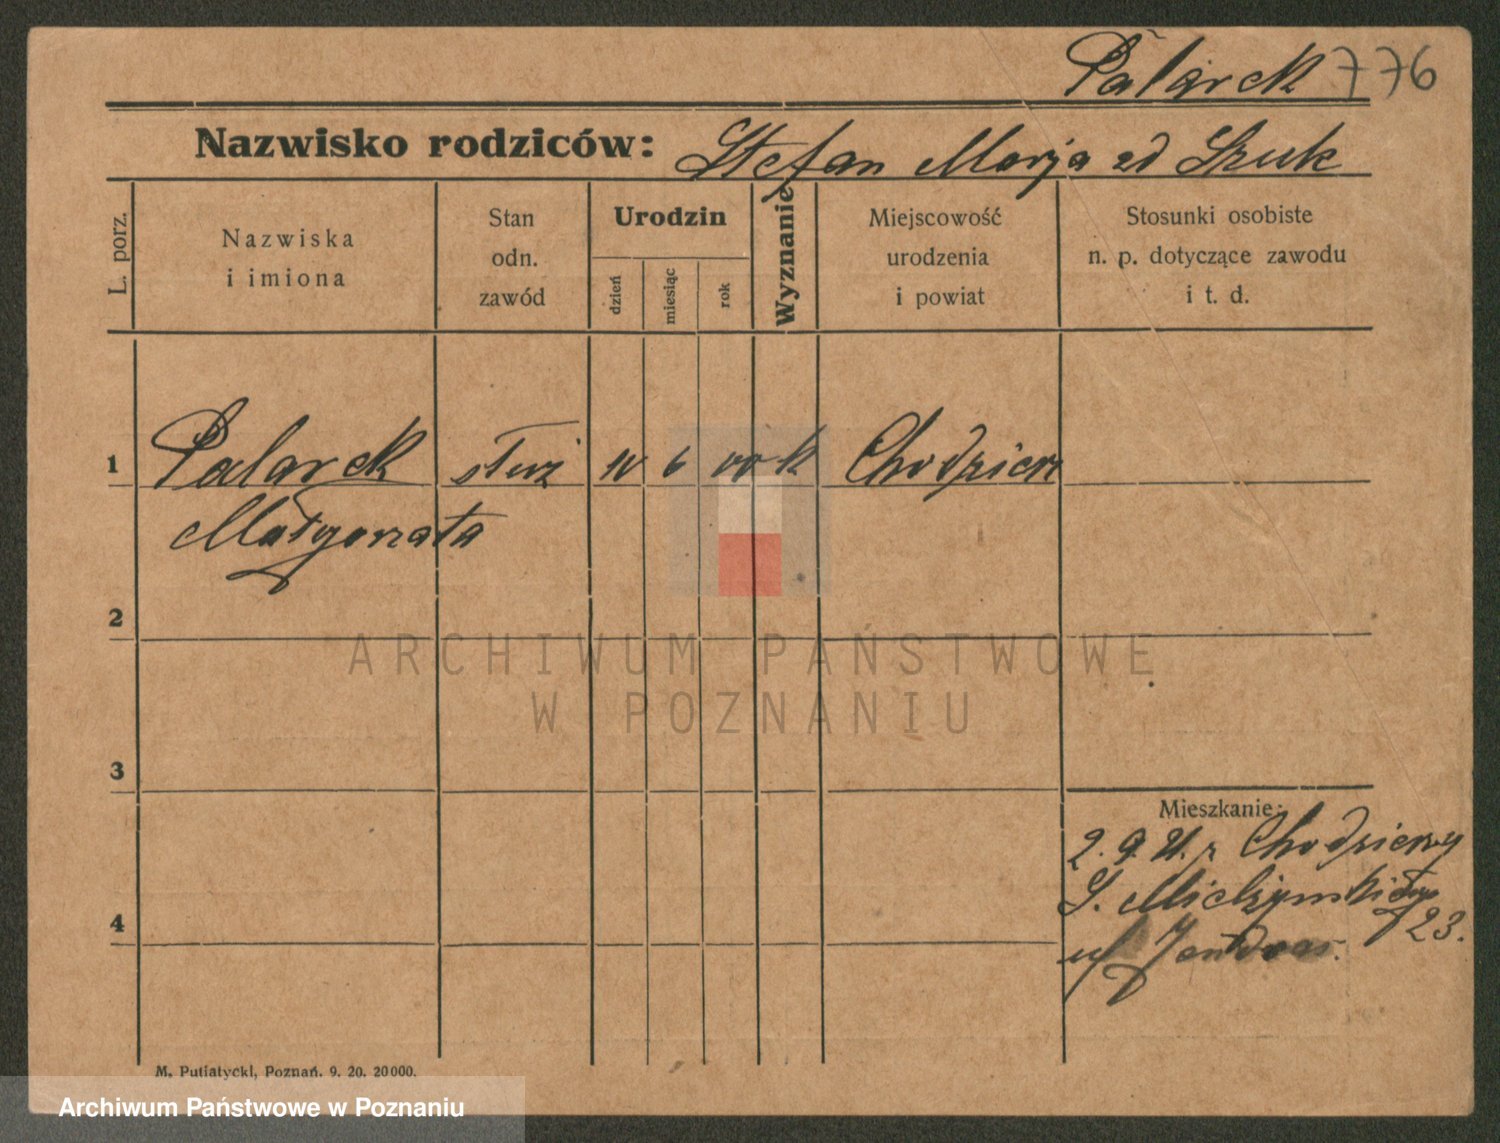 Palarek 776
Nazwisko rodziców: Stefan Marja zd Szuk
L. porz.
Nazwiska
i imiona
Stan
odn.
zawód
Urodzin
dzień
miesiąc
rok
Wyznanie
Miejscowość
urodzenia
i powiat
Stosunki osobiste
n. p. dotyczące zawodu
i t. d.
1 Palarek służ 6 k Chodzież
Małgorzata
2
3
4
Mieszkanie:
2. 9. 21. z Chodzieży
S.
ul 23.
M. Putiatycki, Poznań. 9. 20. 20000.
ARCHIWUM PAŃSTWOWE
W POZNANIU
Archiwum Państwowe w Poznaniu